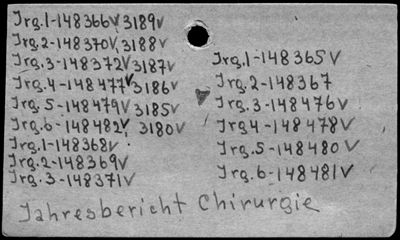 Jrg.1-148366√ 3189√
Jrg.2-148370√ 3188√
Jrg.3-148372√ 3187√
Jrg.4-148477√ 3186√
Jrg.5-148479√ 3185√
Jrg.6-148482√ 3180√
Jrg.1-148368√
Jrg.2-148369√
Jrg.3-148371√
Jrg.1-148365√
Jrg.2-148367
Jrg.3-148476√
Jrg4-148478√
Jrg.5-148480√
Jrg.6-148481√
Jahresbericht Chirurgie